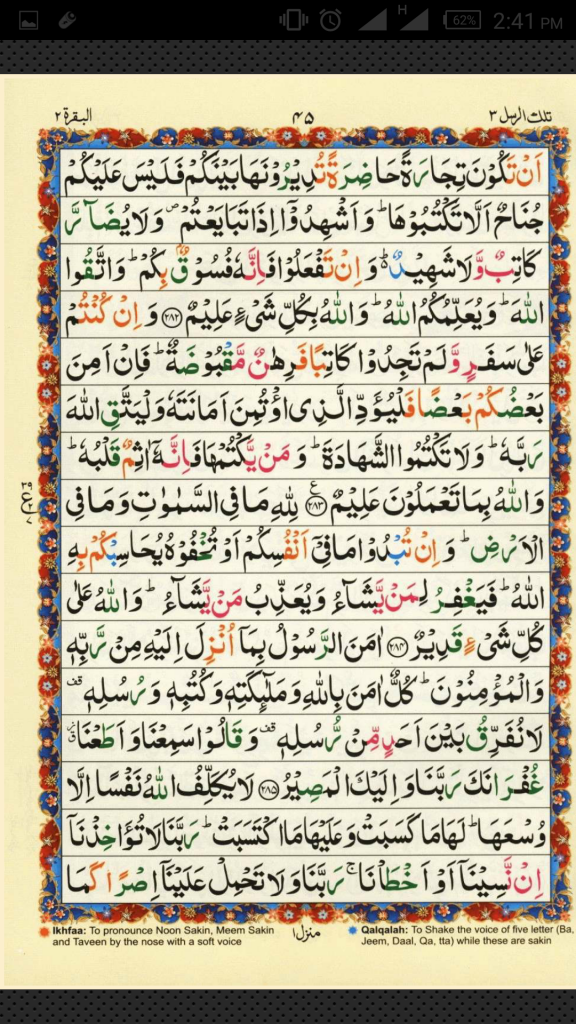 H 62% 2:41 PM
تلك الرسل ٣ ٤٥ البقرة ٢
اَنْ تَكُوْنَ تِجَارَةً حَاضِرَةً تُدِيْرُوْنَهَا بَيْنَكُمْ فَلَيْسَ عَلَيْكُمْ
جُنَاحٌ اَلَّا تَكْتُبُوْهَا ؕ وَ اَشْهِدُوْۤا اِذَا تَبَايَعْتُمْ ۪ وَ لَا يُضَآرَّ
كَاتِبٌ وَّ لَا شَهِيْدٌ ؕ۬ وَ اِنْ تَفْعَلُوْا فَاِنَّهٗ فُسُوْقٌۢ بِكُمْ ؕ وَ اتَّقُوا
اللّٰهَ ؕ وَ يُعَلِّمُكُمُ اللّٰهُ ؕ وَ اللّٰهُ بِكُلِّ شَيْءٍ عَلِيْمٌ ﴿۲۸۲﴾ وَ اِنْ كُنْتُمْ
عَلٰى سَفَرٍ وَّ لَمْ تَجِدُوْا كَاتِبًا فَرِهٰنٌ مَّقْبُوْضَةٌ ؕ فَاِنْ اَمِنَ
بَعْضُكُمْ بَعْضًا فَلْيُؤَدِّ الَّذِى اؤْتُمِنَ اَمَانَتَهٗ وَ لْيَتَّقِ اللّٰهَ
رَبَّهٗ ؕ وَ لَا تَكْتُمُوا الشَّهَادَةَ ؕ وَ مَنْ يَّكْتُمْهَا فَاِنَّهٗۤ اٰثِمٌ قَلْبُهٗ ؕ
وَ اللّٰهُ بِمَا تَعْمَلُوْنَ عَلِيْمٌ ﴿۲۸۳﴾ ع لِلّٰهِ مَا فِى السَّمٰوٰتِ وَ مَا فِى
الْاَرْضِ ؕ وَ اِنْ تُبْدُوْا مَا فِىْۤ اَنْفُسِكُمْ اَوْ تُخْفُوْهُ يُحَاسِبْكُمْ بِهِ
اللّٰهُ ؕ فَيَغْفِرُ لِمَنْ يَّشَآءُ وَ يُعَذِّبُ مَنْ يَّشَآءُ ؕ وَ اللّٰهُ عَلٰى
كُلِّ شَيْءٍ قَدِيْرٌ ﴿۲۸۴﴾ اٰمَنَ الرَّسُوْلُ بِمَاۤ اُنْزِلَ اِلَيْهِ مِنْ رَّبِّهٖ
وَ الْمُؤْمِنُوْنَ ؕ كُلٌّ اٰمَنَ بِاللّٰهِ وَ مَلٰٓئِكَتِهٖ وَ كُتُبِهٖ وَ رُسُلِهٖ قف
لَا نُفَرِّقُ بَيْنَ اَحَدٍ مِّنْ رُّسُلِهٖ قف وَ قَالُوْا سَمِعْنَا وَ اَطَعْنَا
غُفْرَانَكَ رَبَّنَا وَ اِلَيْكَ الْمَصِيْرُ ﴿۲۸۵﴾ لَا يُكَلِّفُ اللّٰهُ نَفْسًا اِلَّا
وُسْعَهَا ؕ لَهَا مَا كَسَبَتْ وَ عَلَيْهَا مَا اكْتَسَبَتْ ؕ رَبَّنَا لَا تُؤَاخِذْنَاۤ
اِنْ نَّسِيْنَاۤ اَوْ اَخْطَاْنَا ۚ رَبَّنَا وَ لَا تَحْمِلْ عَلَيْنَاۤ اِصْرًا كَمَا
Ikhfaa: To pronounce Noon Sakin, Meem Sakin
and Taveen by the nose with a soft voice
منزل ١
Qalqalah: To Shake the voice of five letter (Ba,
Jeem, Daal, Qa, tta) while these are sakin